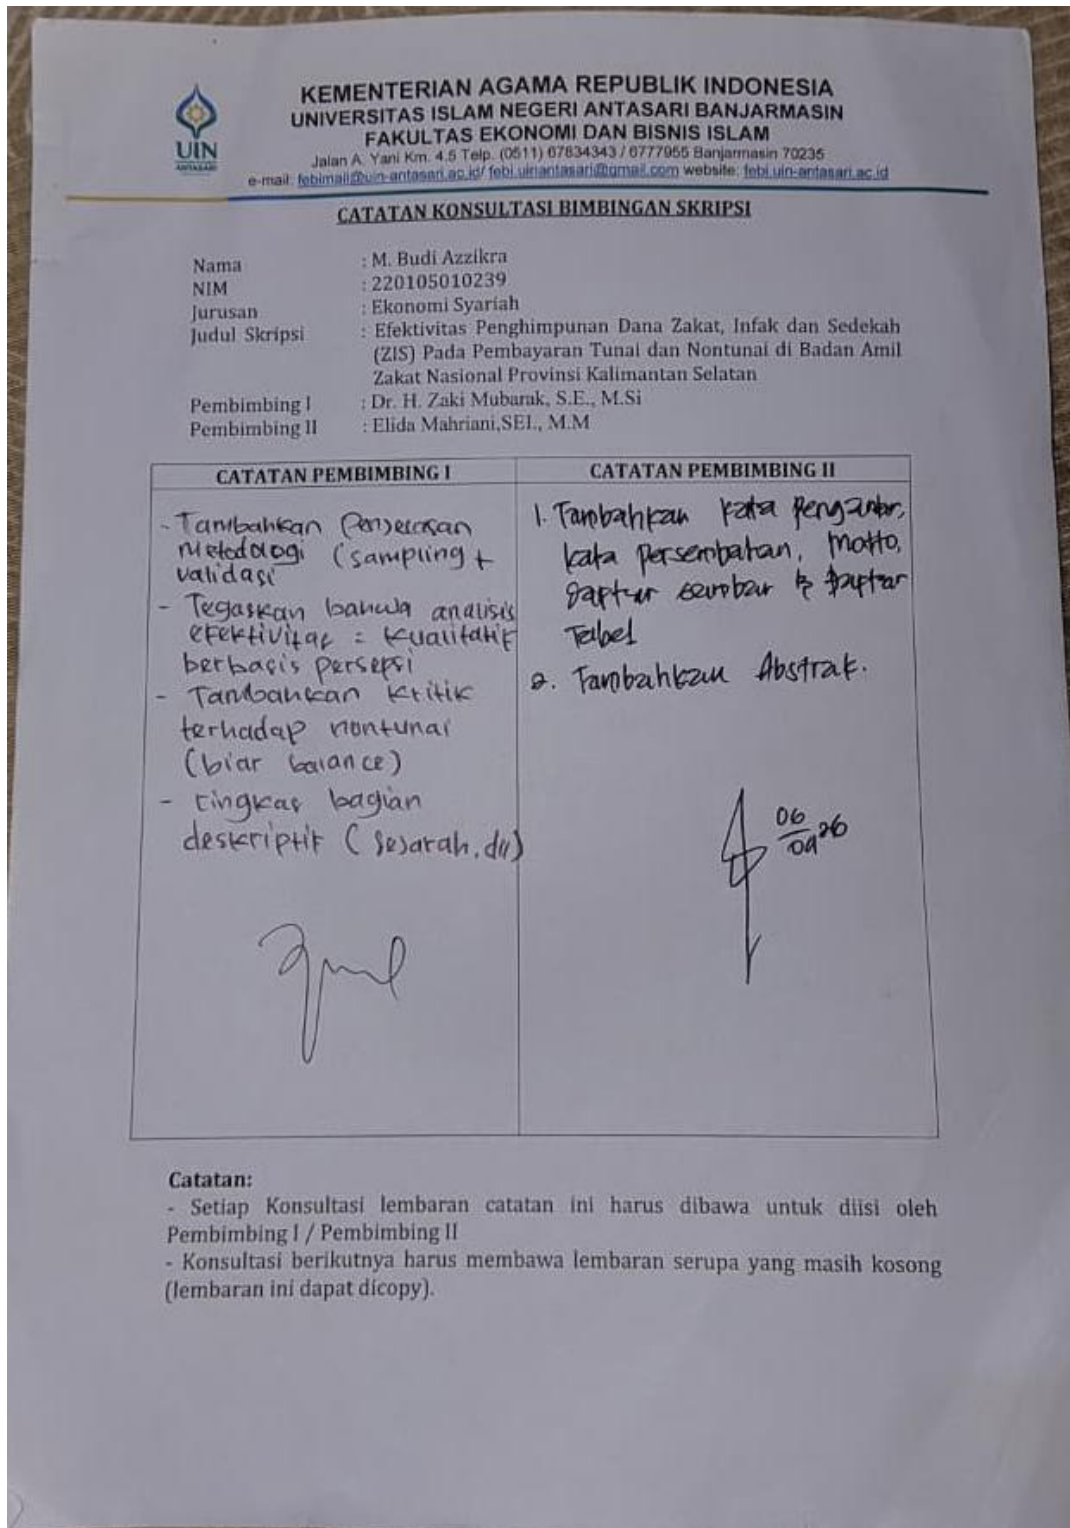 KEMENTERIAN AGAMA REPUBLIK INDONESIA
UNIVERSITAS ISLAM NEGERI ANTASARI BANJARMASIN
FAKULTAS EKONOMI DAN BISNIS ISLAM
Jalan A. Yani Km. 4.5 Telp. (0511) 67834343 / 6777955 Banjarmasin 70235
e-mail: febimail@uin-antasari.ac.id/ febi.uinantasari@gmail.com website: febi.uin-antasari.ac.id
UIN
ANTASARI
CATATAN KONSULTASI BIMBINGAN SKRIPSI
Nama : M. Budi Azzikra
NIM : 220105010239
Jurusan : Ekonomi Syariah
Judul Skripsi : Efektivitas Penghimpunan Dana Zakat, Infak dan Sedekah
(ZIS) Pada Pembayaran Tunai dan Nontunai di Badan Amil
Zakat Nasional Provinsi Kalimantan Selatan
Pembimbing I : Dr. H. Zaki Mubarak, S.E., M.Si
Pembimbing II : Elida Mahriani,SEI., M.M
CATATAN PEMBIMBING I
- Tambahkan Penjelasan
Metodologi (sampling +
validasi
- Tegaskan bahwa analisis
efektivitas = kualitatif
berbasis persepsi
- Tambahkan kritik
terhadap nontunai
(biar balance)
- ringkas bagian
deskriptif (sejarah, dll)
CATATAN PEMBIMBING II
1. Tambahkan kata pengantar,
kata persembahan, motto,
daftar gambar & daftar
Tabel
2. Tambahkan Abstrak.
06
04 26
Catatan:
- Setiap Konsultasi lembaran catatan ini harus dibawa untuk diisi oleh
Pembimbing I / Pembimbing II
- Konsultasi berikutnya harus membawa lembaran serupa yang masih kosong
(lembaran ini dapat dicopy).